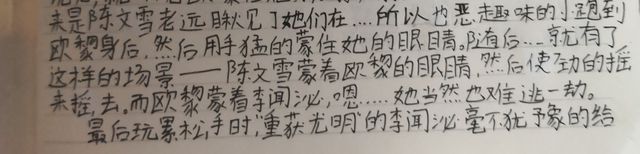 来是陈文雪老远瞅见了她们在....所以也恶趣味的小跑到
欧黎身后,然后用手猛的蒙住她的眼睛。随后....就有了
这样的场景——陈文雪蒙着欧黎的眼睛,然后使劲的摇
来摇去。而欧黎蒙着李闻泌,嗯....她当然也难逃一劫。
最后玩累松手时,"重获光明"的李闻泌毫不犹予象的给